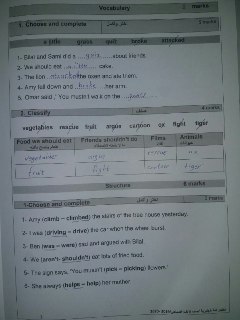 Vocabulary
marks
1. Choose and complete
5 marks
a little grass quiz broke attacked
1- Bilal and Sami did a quiz about friends.
2- We should eat a little cake.
3- The lion attacked the oxen and ate them.
4- Amy fell down and broke her arm.
5- Omar said, "You mustn't walk on the grass
2. Classify
4 marks
vegetables rescue fruit argue cartoon ox fight tiger
Food we should eat Friends shouldn't do Films Animals
vegetables argue
fruit fight cartoon tiger
Structure
8 marks
1-Choose and complete
1- Amy (climb – climbed) the stairs of the tree house yesterday.
2- I was (driving – drive) the car when the wheel burst.
3- Ben (was – were) sad and argued with Bilal.
4- We (aren't- shouldn't) eat lots of fried food.
5- The sign says, "You mustn't (pick – picking) flowers."
6- She always (helps – help) her mother